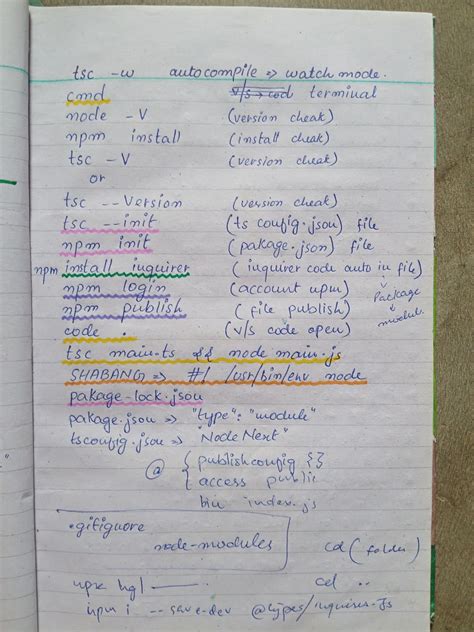 tsc -w autocompile => watch mode.
cmd terminal
node -V (version cheak)
npm install (install cheak)
tsc -V (version cheak)
or
tsc --Version (version cheak)
tsc --init (ts config.json) file
npm init (pakage.json) file
npm install inquirer (inquirer code auto in file)
npm login (account npm) Package
npm publish (file publish) modul.
code . (v/s code open)
tsc main.ts && node main.js
SHABANG => #! /usr/bin/env node
pakage-lock.json
pakage.json => "type": "module"
tsconfig.json => NodeNext"
@ { publishconfig {}
access public
bin index.js
.gitignore
node-modules cd (folder)
cd ..
npm i --save-dev @types/inquirer.js